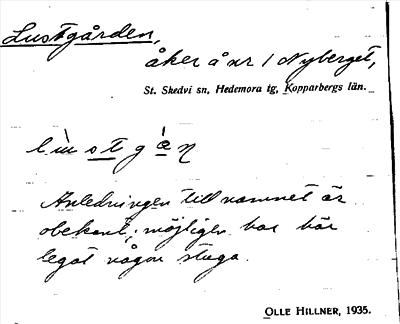 Lustgården,
åker å nr 1 Nyberget,
St. Skedvi sn, Hedemora tg, Kopparbergs län.
Anledningen till namnet är
obekant; möjligen har här
legat någon stuga.
OLLE HILLNER, 1935.